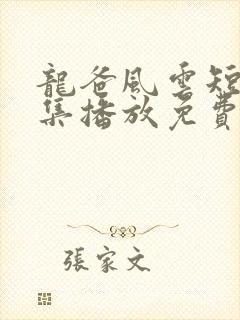 龍爸風雲短
集播放免費
張家文